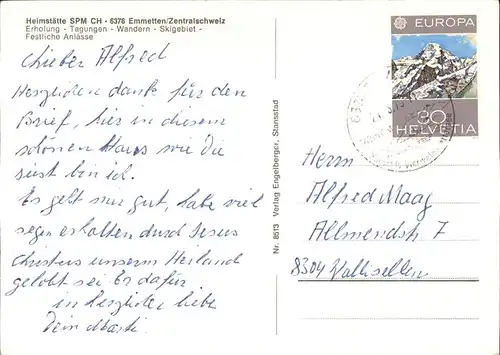 Heimstätte SPM CH - 6376 Emmetten/Zentralschweiz
Erholung - Tagungen - Wandern - Skigebiet -
Festliche Anlässe
Lieber Alfred
Herzlichen dank für den
Brief, hier in diesem
schönen Haus wie Du
siest bin ich.
Es geht mir gut, habe viel
segen erhalten durch Jesus
Christus unserm Heiland
gelobt sei Er dafür.
in herzlicher liebe
Dein
Nr. 8513 Verlag Engelberger, Stansstad
EUROPA
80
HELVETIA
Herrn
Alfred Maag
Allmendstr 7
8304 Wallisellen